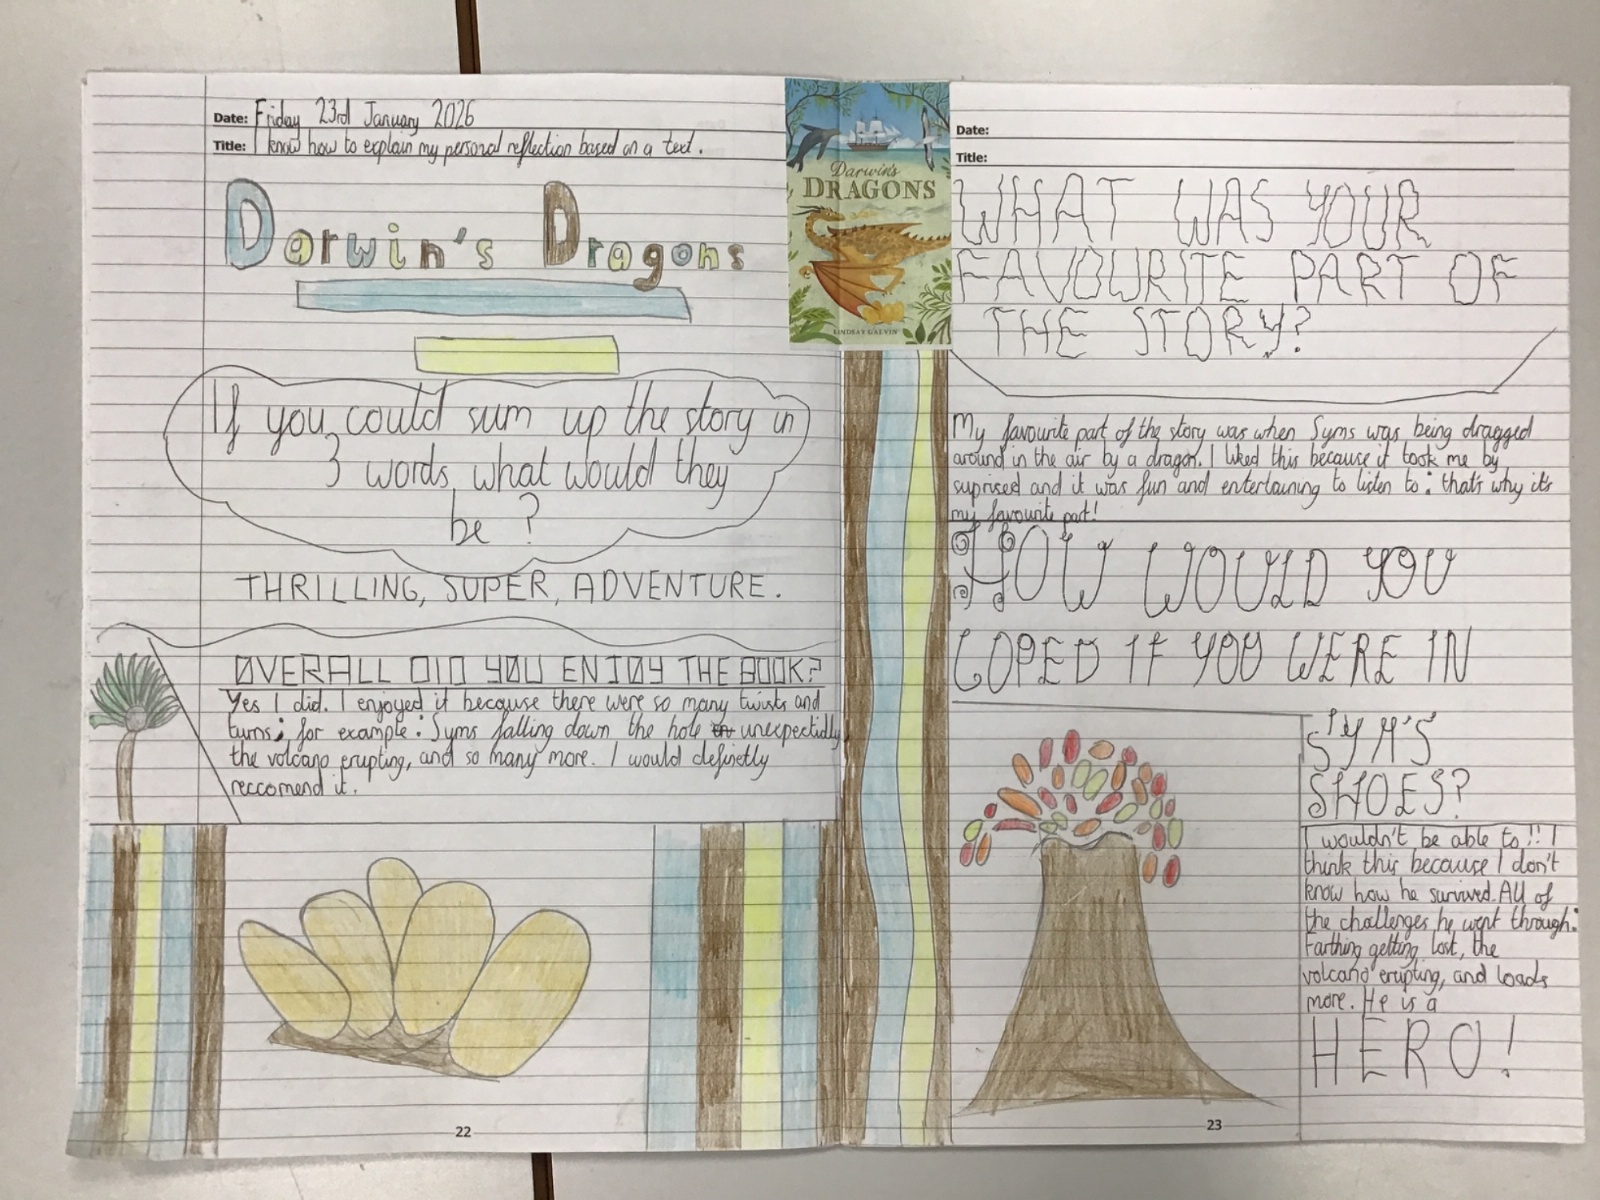 Date: Friday 23rd January 2026
Title: I know how to explain my personal reflection based on a text.
Darwin's Dragons
If you could sum up the story in
3 words what would they
be ?
THRILLING, SUPER, ADVENTURE.
OVERALL DID YOU ENJOY THE BOOK?
Yes I did. I enjoyed it because there were so many twists and
turns; for example: Syms falling down the hole unexpectidly
the volcano erupting, and so many more. I would definetly
reccomend it.
22
Darwin's
DRAGONS
LINDSAY GALVIN
Date:
Title:
WHAT WAS YOUR
FAVOURITE PART OF
THE STORY?
My favourite part of the story was when Syms was being dragged
around in the air by a dragon. I liked this because it took me by
suprised and it was fun and entertaining to listen to: that's why it's
my favourite part!
HOW WOULD YOU
COPED IF YOU WERE IN
SYM'S
SHOES?
I wouldn't be able to!! I
think this because I don't
know how he survived. All of
the challenges he went through:
Farthing getting lost, the
volcano erupting, and loads
more. He is a
HERO!
23